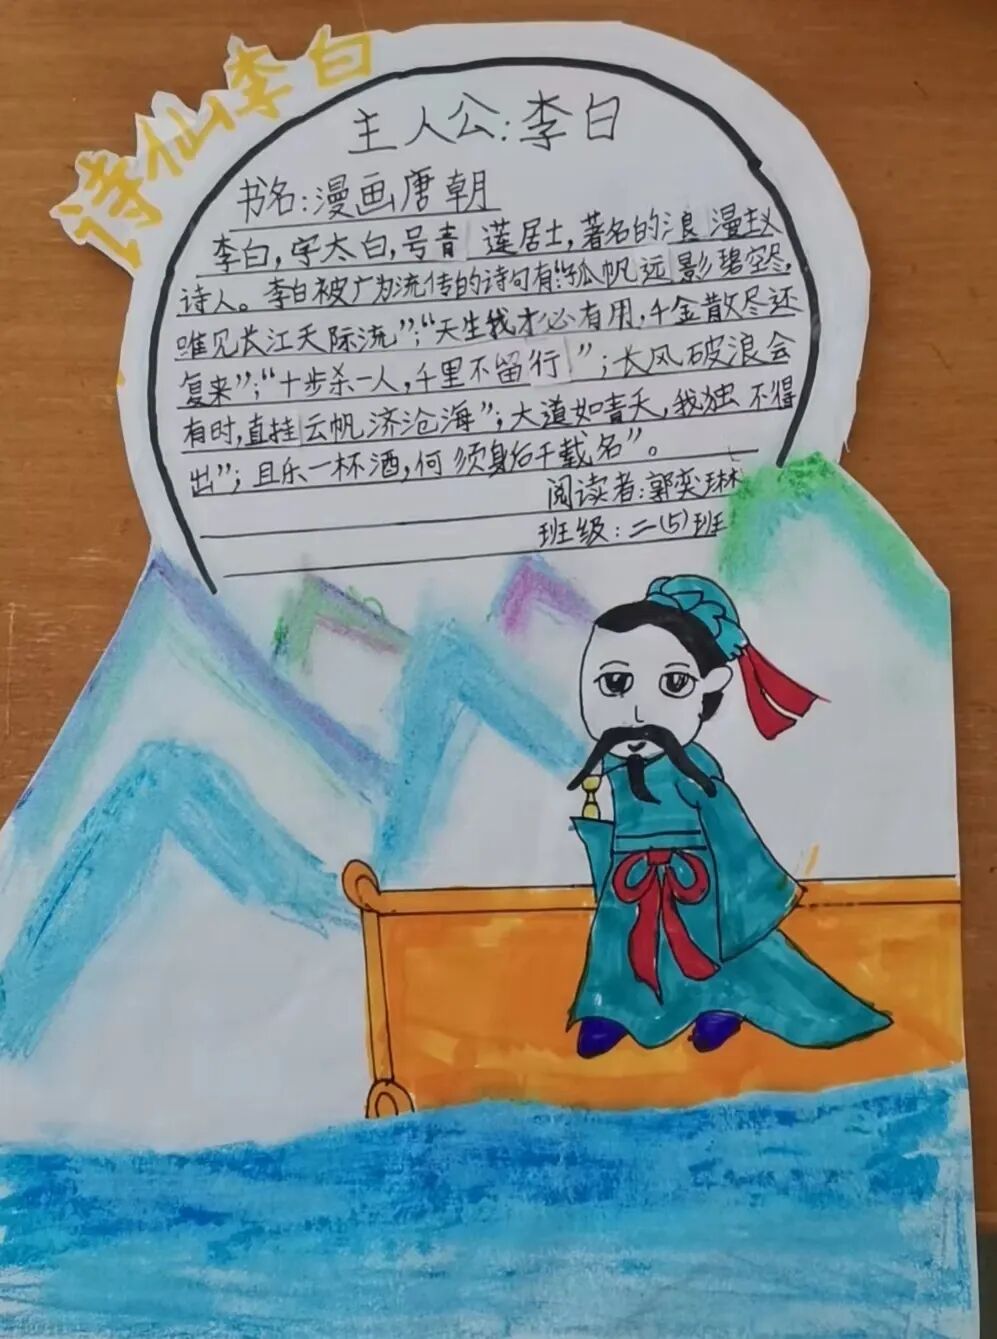 诗仙李白
主人公:李白
书名:漫画唐朝
李白,字太白,号青莲居士,著名的浪漫主义
诗人。李白被广为流传的诗句有:“孤帆远影碧空尽,
唯见长江天际流”;“天生我才必有用,千金散尽还
复来”;“十步杀一人,千里不留行”;长风破浪会
有时,直挂云帆济沧海”;大道如青天,我独不得
出”;且乐一杯酒,何须身后千载名”。
阅读者:郭奕琳
班级:二(5)班